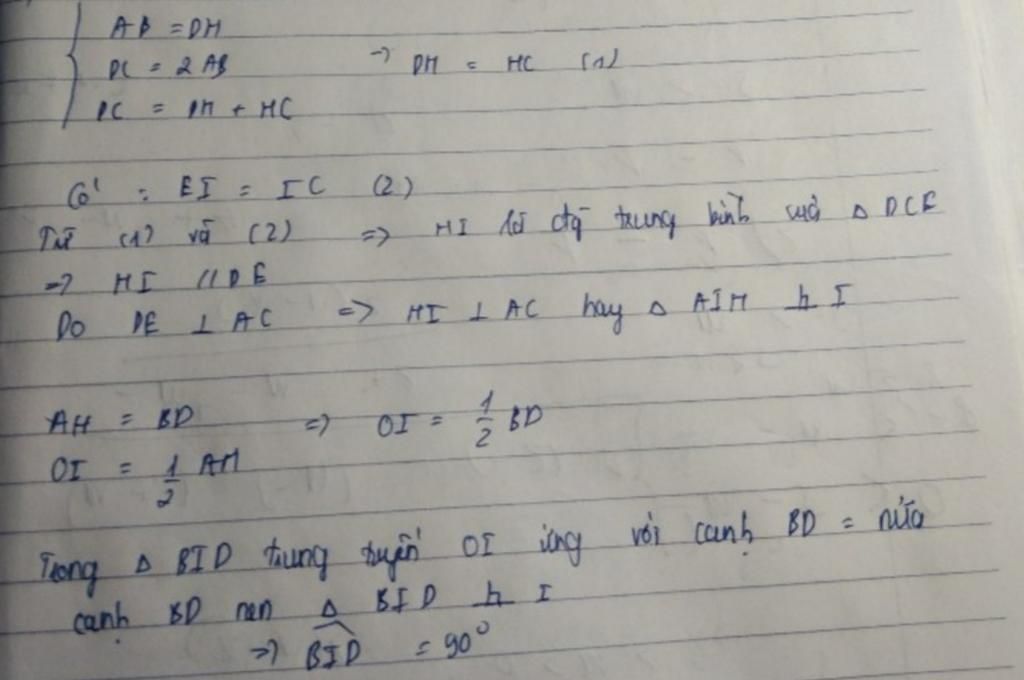 AB = DH
DC = 2 AB → DH = HC (1)
DC = DH + HC
Có : EI = IC (2)
Từ (1) và (2) => HI là đg trung bình của Δ DCE
=> HI // DE
Do DE ⊥ AC => HI ⊥ AC hay Δ AIH ⊥ I
AH = BD => OI = 1/2 BD
OI = 1/2 AH
Trong Δ BID trung tuyến OI ứng với cạnh BD = nửa
cạnh BD nen Δ BID ⊥ I
=> BID = 90°